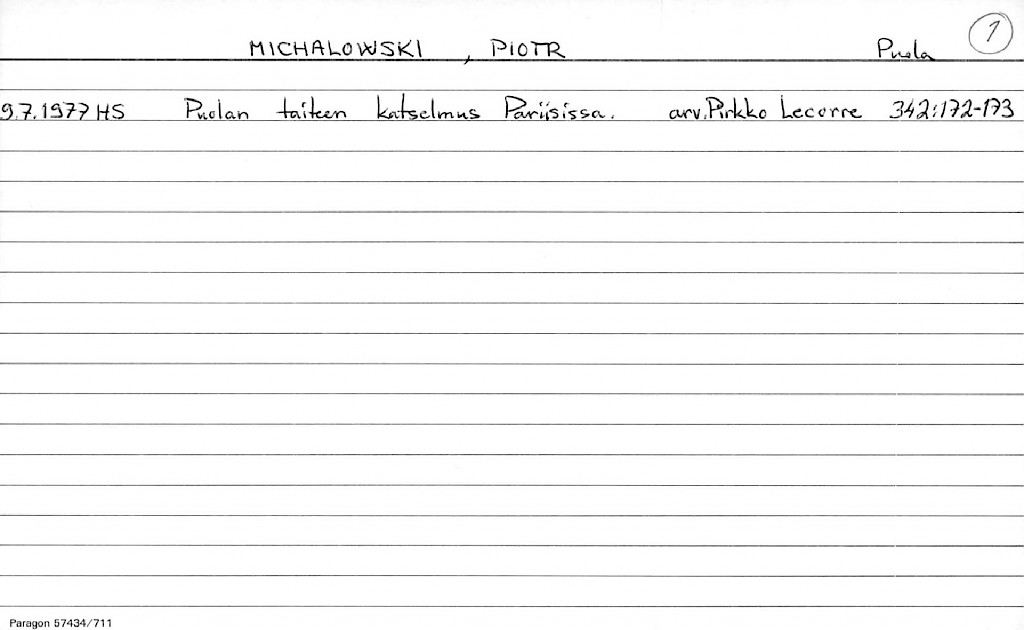 MICHALOWSKI, PIOTR Puola 1
9.7.1977 HS Puolan taiteen katselmus Pariisissa. arv. Pirkko Lecorre 342:172-173
Paragon 57434/711